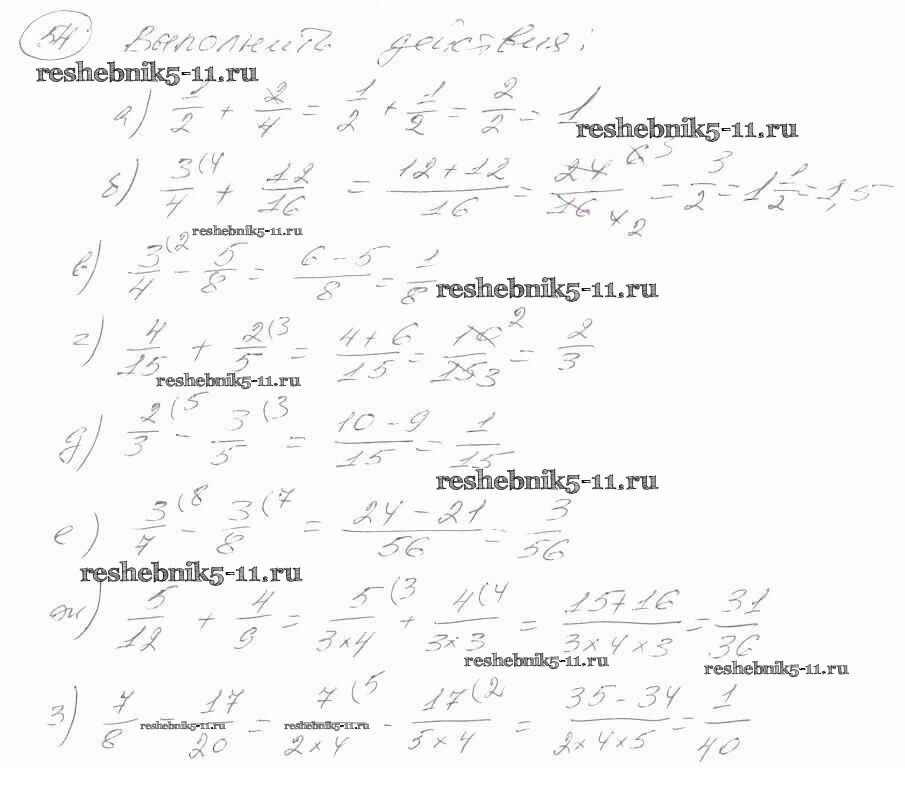 54. Выполнить действия:
reshebnik5-11.ru
а) 1/2 + 2/4 = 1/2 + 1/2 = 2/2 = 1
reshebnik5-11.ru
б) 3(4/4 + 12/16 = (12+12)/16 = 24 6 3/16 4 2 = 3/2 = 1 1/2 = 1,5
reshebnik5-11.ru
в) 3(2/4 - 5/8 = (6-5)/8 = 1/8
reshebnik5-11.ru
г) 4/15 + 2(3/5 = (4+6)/15 = 10 2/15 3 = 2/3
reshebnik5-11.ru
д) 2(5/3 - 3(3/5 = (10-9)/15 = 1/15
reshebnik5-11.ru
е) 3(8/7 - 3(7/8 = (24-21)/56 = 3/56
reshebnik5-11.ru
ж) 5/12 + 4/9 = 5(3/(3×4) + 4(4/(3×3) = (15+16)/(3×4×3) = 31/36
reshebnik5-11.ru
reshebnik5-11.ru
з) 7/8 - 17/20 = 7(5/(2×4) - 17(2/(5×4) = (35-34)/(2×4×5) = 1/40
reshebnik5-11.ru
reshebnik5-11.ru